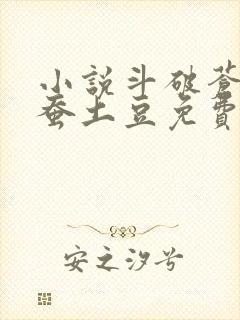 小說斗破蒼
蚕土豆免費
安之汐兮